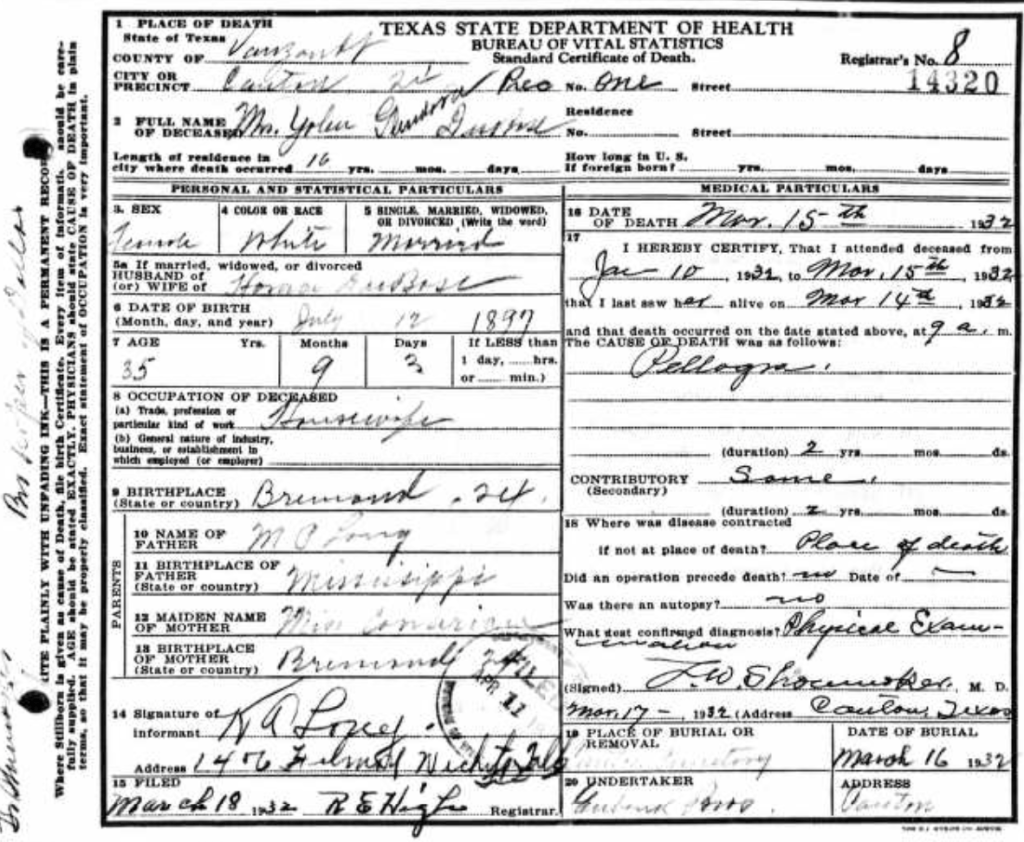 TEXAS STATE DEPARTMENT OF HEALTH
BUREAU OF VITAL STATISTICS
Standard Certificate of Death.
Registrar's No. 8
14320
1 PLACE OF DEATH
State of Texas
COUNTY OF Vanzandt
CITY OR PRECINCT Canton Prec No. One Street
2 FULL NAME OF DECEASED Mrs.
Residence
No. Street
Length of residence in city where death occurred 16 yrs. mos. days
How long in U. S. If foreign born? yrs. mos. days
PERSONAL AND STATISTICAL PARTICULARS
3. SEX
Female
4 COLOR OR RACE
White
5 SINGLE, MARRIED, WIDOWED, OR DIVORCED (Write the word)
Married
5a If married, widowed, or divorced
HUSBAND OF
(or) WIFE OF DuBose
6 DATE OF BIRTH
(Month, day, and year) July 12 1897
7 AGE Yrs. Months Days If LESS than
35 9 3 1 day, hrs.
or min.)
8 OCCUPATION OF DECEASED
(a) Trade, profession or
particular kind of work Housewife
(b) General nature of industry,
business, or establishment in
which employed (or employer)
9 BIRTHPLACE
(State or country) Bremond
PARENTS
10 NAME OF FATHER Long
11 BIRTHPLACE OF FATHER
(State or country) Mississippi
12 MAIDEN NAME OF MOTHER
13 BIRTHPLACE OF MOTHER
(State or country) Bremond
FILED
APR 11
14 Signature of informant
Address 1406 Wichita Falls
15 FILED
March 18 1932 R E High Registrar.
MEDICAL PARTICULARS
16 DATE OF DEATH Mar. 15th 1932
17
I HEREBY CERTIFY, That I attended deceased from
Jan 10, 1932, to Mar. 15th, 1932
that I last saw her alive on Mar 14th, 1932
and that death occurred on the date stated above, at 9 a. m.
The CAUSE OF DEATH was as follows:
Pellagra.
(duration) 2 yrs. mos. ds.
CONTRIBUTORY Same.
(Secondary)
(duration) 2 yrs. mos. ds.
18 Where was disease contracted
if not at place of death? Place of death
Did an operation precede death? no Date of
Was there an autopsy? no
What test confirmed diagnosis? Physical Exam-
ination
(Signed) Shoemaker, M. D.
Mar. 17 - 1932 (Address Canton, Texas
19 PLACE OF BURIAL OR REMOVAL
Cemetery
DATE OF BURIAL
March 16 1932
20 UNDERTAKER
Eubank Bros
ADDRESS
Canton
WRITE PLAINLY WITH UNFADING INK—THIS IS A PERMANENT RECORD
Where Stillborn is given as case of Death, file birth Certificate. Every item of information should be care-
fully supplied. AGE should be stated EXACTLY. PHYSICIANS should state CAUSE OF DEATH in plain
terms, so that it may be properly classified. Exact statement of OCCUPATION is very important.